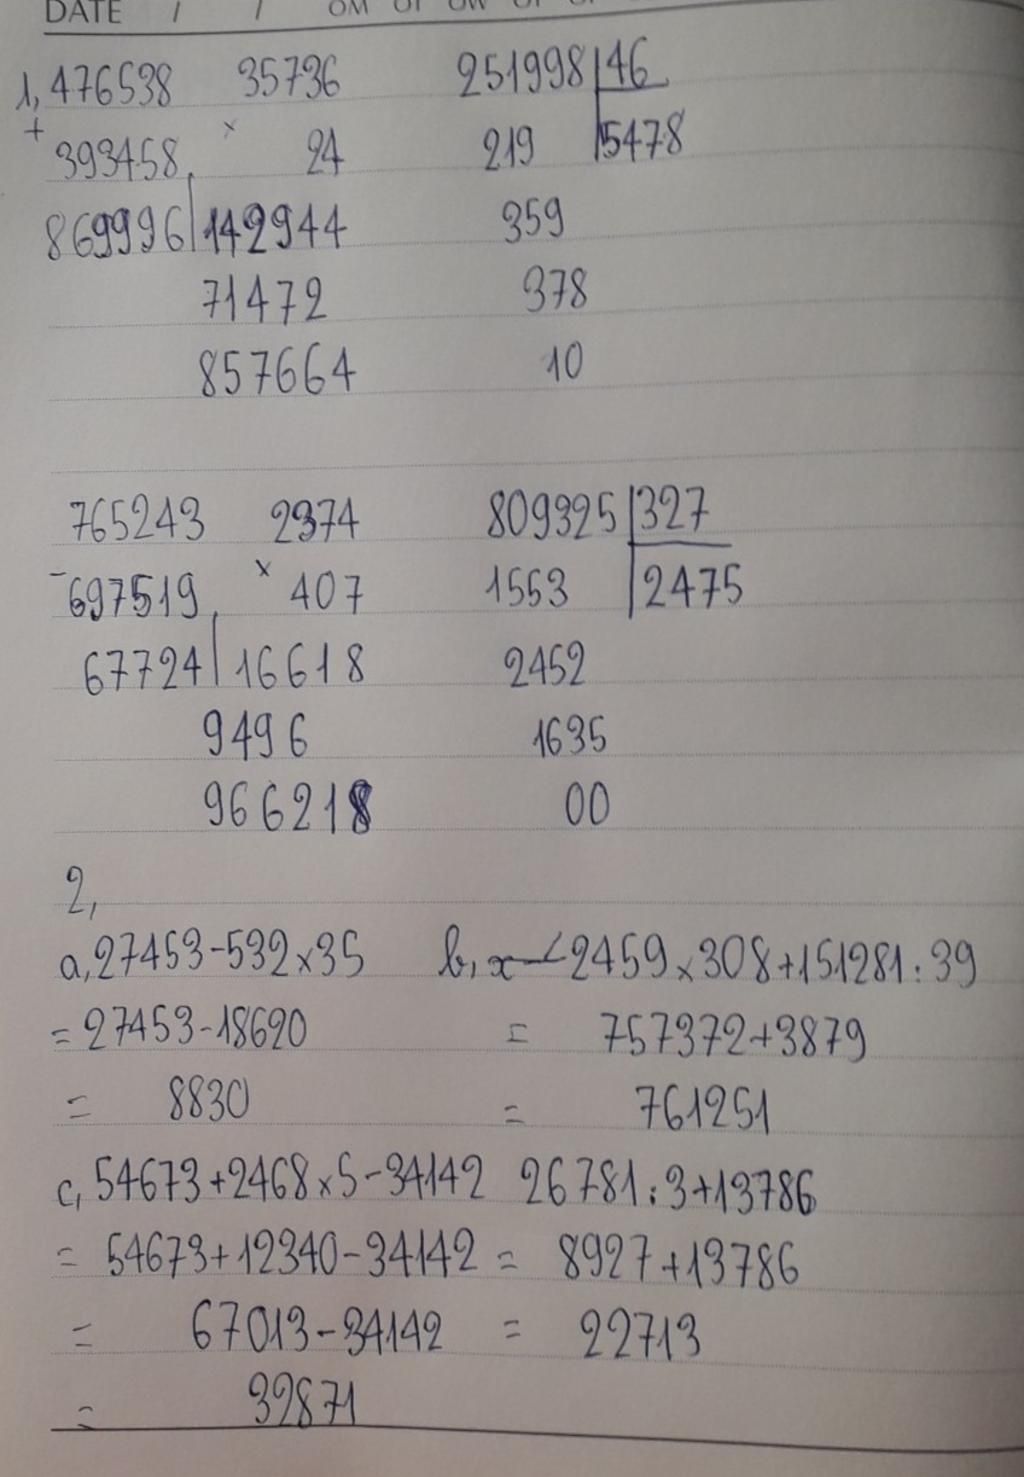 DATE / /
1, 476538 35736 251998 46
+ 393458 × 24 219 5478
869996 142944 359
71472 378
857664 10
765243 2374 809325 327
- 697519 × 407 1553 2475
67724 16618 2452
9496 1635
966218 00
2,
a, 27453-532×35 b, 2459×308+151281:39
= 27453-18620 = 757372+3879
= 8830 = 761251
c, 54673+2468×5-34142 26781:3+13786
= 54673+12340-34142 = 8927+13786
= 67013-34142 = 22713
= 32871